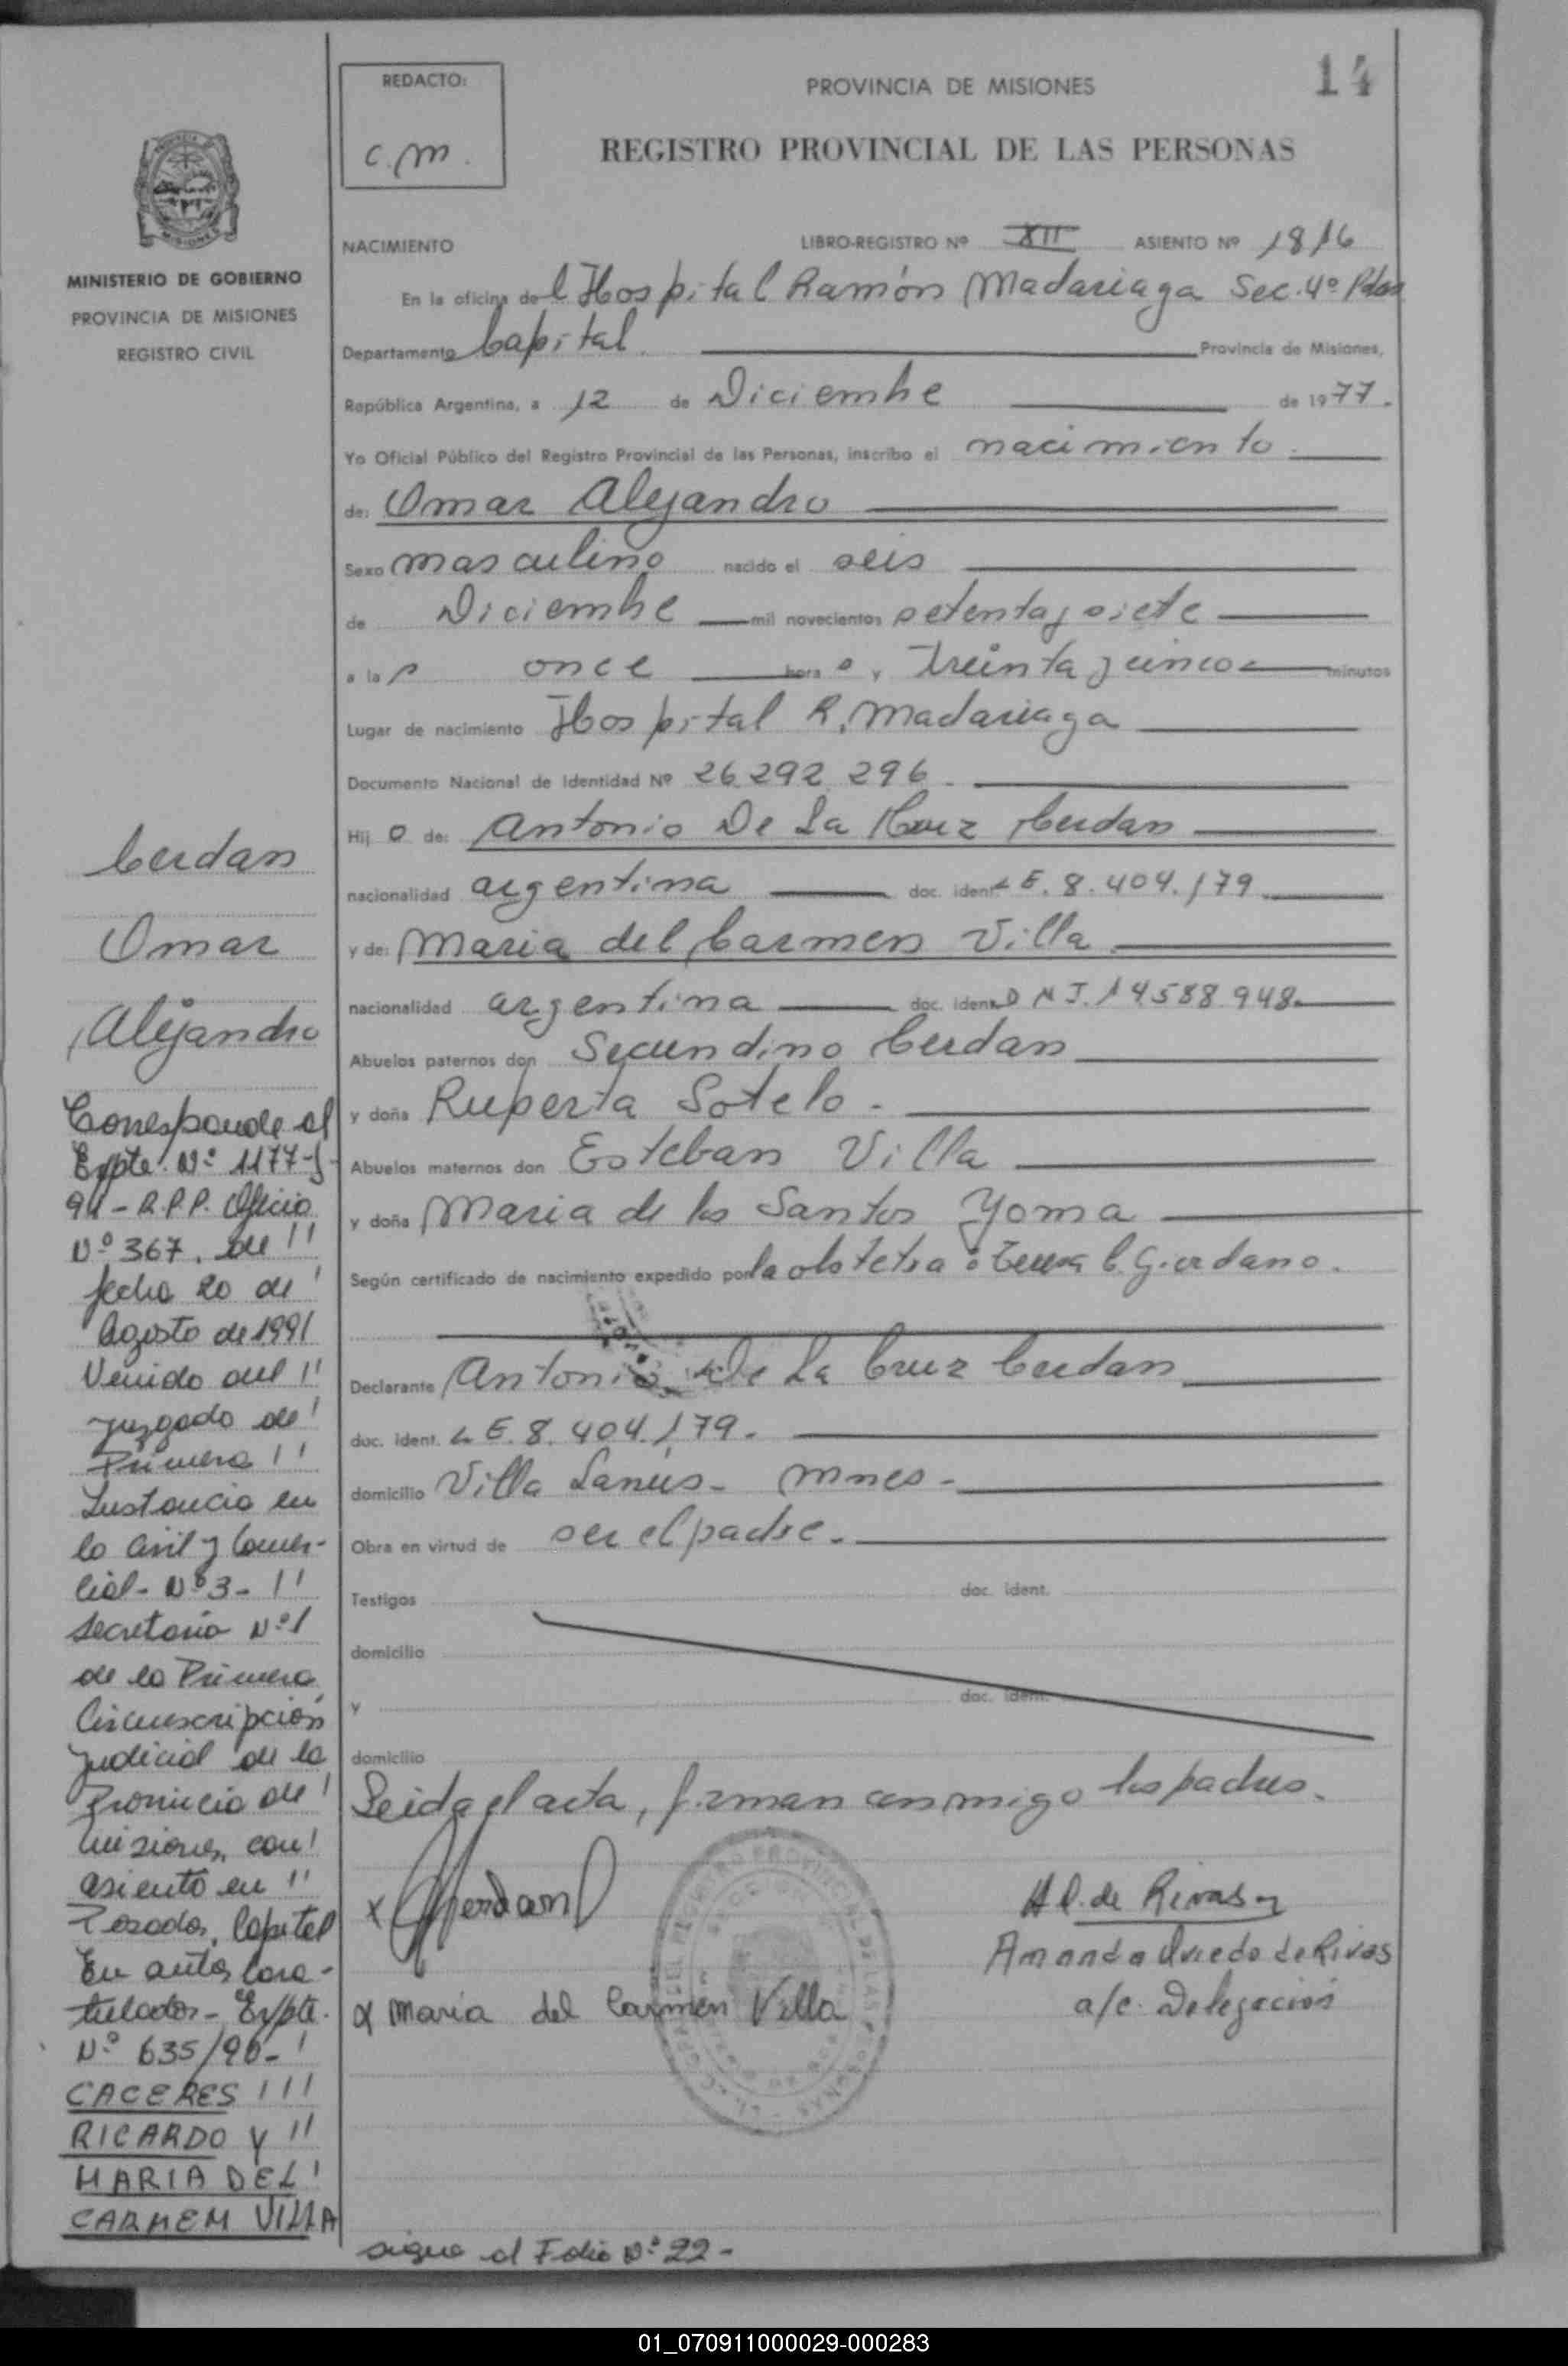 14
REDACTO:
C.M.
PROVINCIA DE MISIONES
REGISTRO PROVINCIAL DE LAS PERSONAS
MINISTERIO DE GOBIERNO
PROVINCIA DE MISIONES
REGISTRO CIVIL
NACIMIENTO LIBRO-REGISTRO Nº XII ASIENTO Nº 1816
En la oficina del Hospital Ramón Madariaga Sec. 4º Pdas
Departamento Capital. Provincia de Misiones,
República Argentina, a 12 de Diciembre de 1977.
Yo Oficial Público del Registro Provincial de las Personas, inscribo el nacimiento.
de: Omar Alejandro
Sexo masculino nacido el seis
de Diciembre mil novecientos setenta y siete
a las once horas y treinta y cinco minutos
Lugar de nacimiento Hospital R. Madariaga
Documento Nacional de Identidad Nº 26.292.296.
Hijo de: Antonio De La Cruz Cerdan
nacionalidad argentina doc. ident. L E. 8.404.179
y de: Maria del Carmen Villa
nacionalidad argentina doc. ident. D N I. 14588948.
Abuelos paternos don Secundino Cerdan
y doña Ruperta Sotelo.
Abuelos maternos don Esteban Villa
y doña Maria de los Santos Yoma
Según certificado de nacimiento expedido por la obstetra: C. Giordano.
Declarante Antonio De La Cruz Cerdan
doc. ident. L E. 8.404.179.
domicilio Villa Lanús - Mnes -
Obra en virtud de ser el padre.
Testigos doc. ident.
domicilio
y doc. ident.
domicilio
Leida el acta, firman conmigo los padres.
x Cerdan
x Maria del Carmen Villa
A O. de Rivas
Amanda Oviedo de Rivas
a/c. Delegación
Cerdan
Omar
Alejandro
Corresponde al
Expte. Nº 1177-J-
91 - R.P.P. Oficio
Nº 367, de !!
fecha 20 de !
Agosto de 1991
Venido del !!
juzgado de !
Primera !!
Instancia en
lo Civil y Comer-
cial - Nº 3 - !!
Secretaría Nº 1
de la Primera
Circunscripción
judicial de la
Provincia de !
Misiones, con !
asiento en !!
Posadas, Capital
En autos cara-
tulados - Expte.
Nº 635/90 - !
CACERES !!!
RICARDO Y !!
MARIA DEL !
CARMEM VILLA
sigue al Folio Nº 22 -
01_070911000029-000283